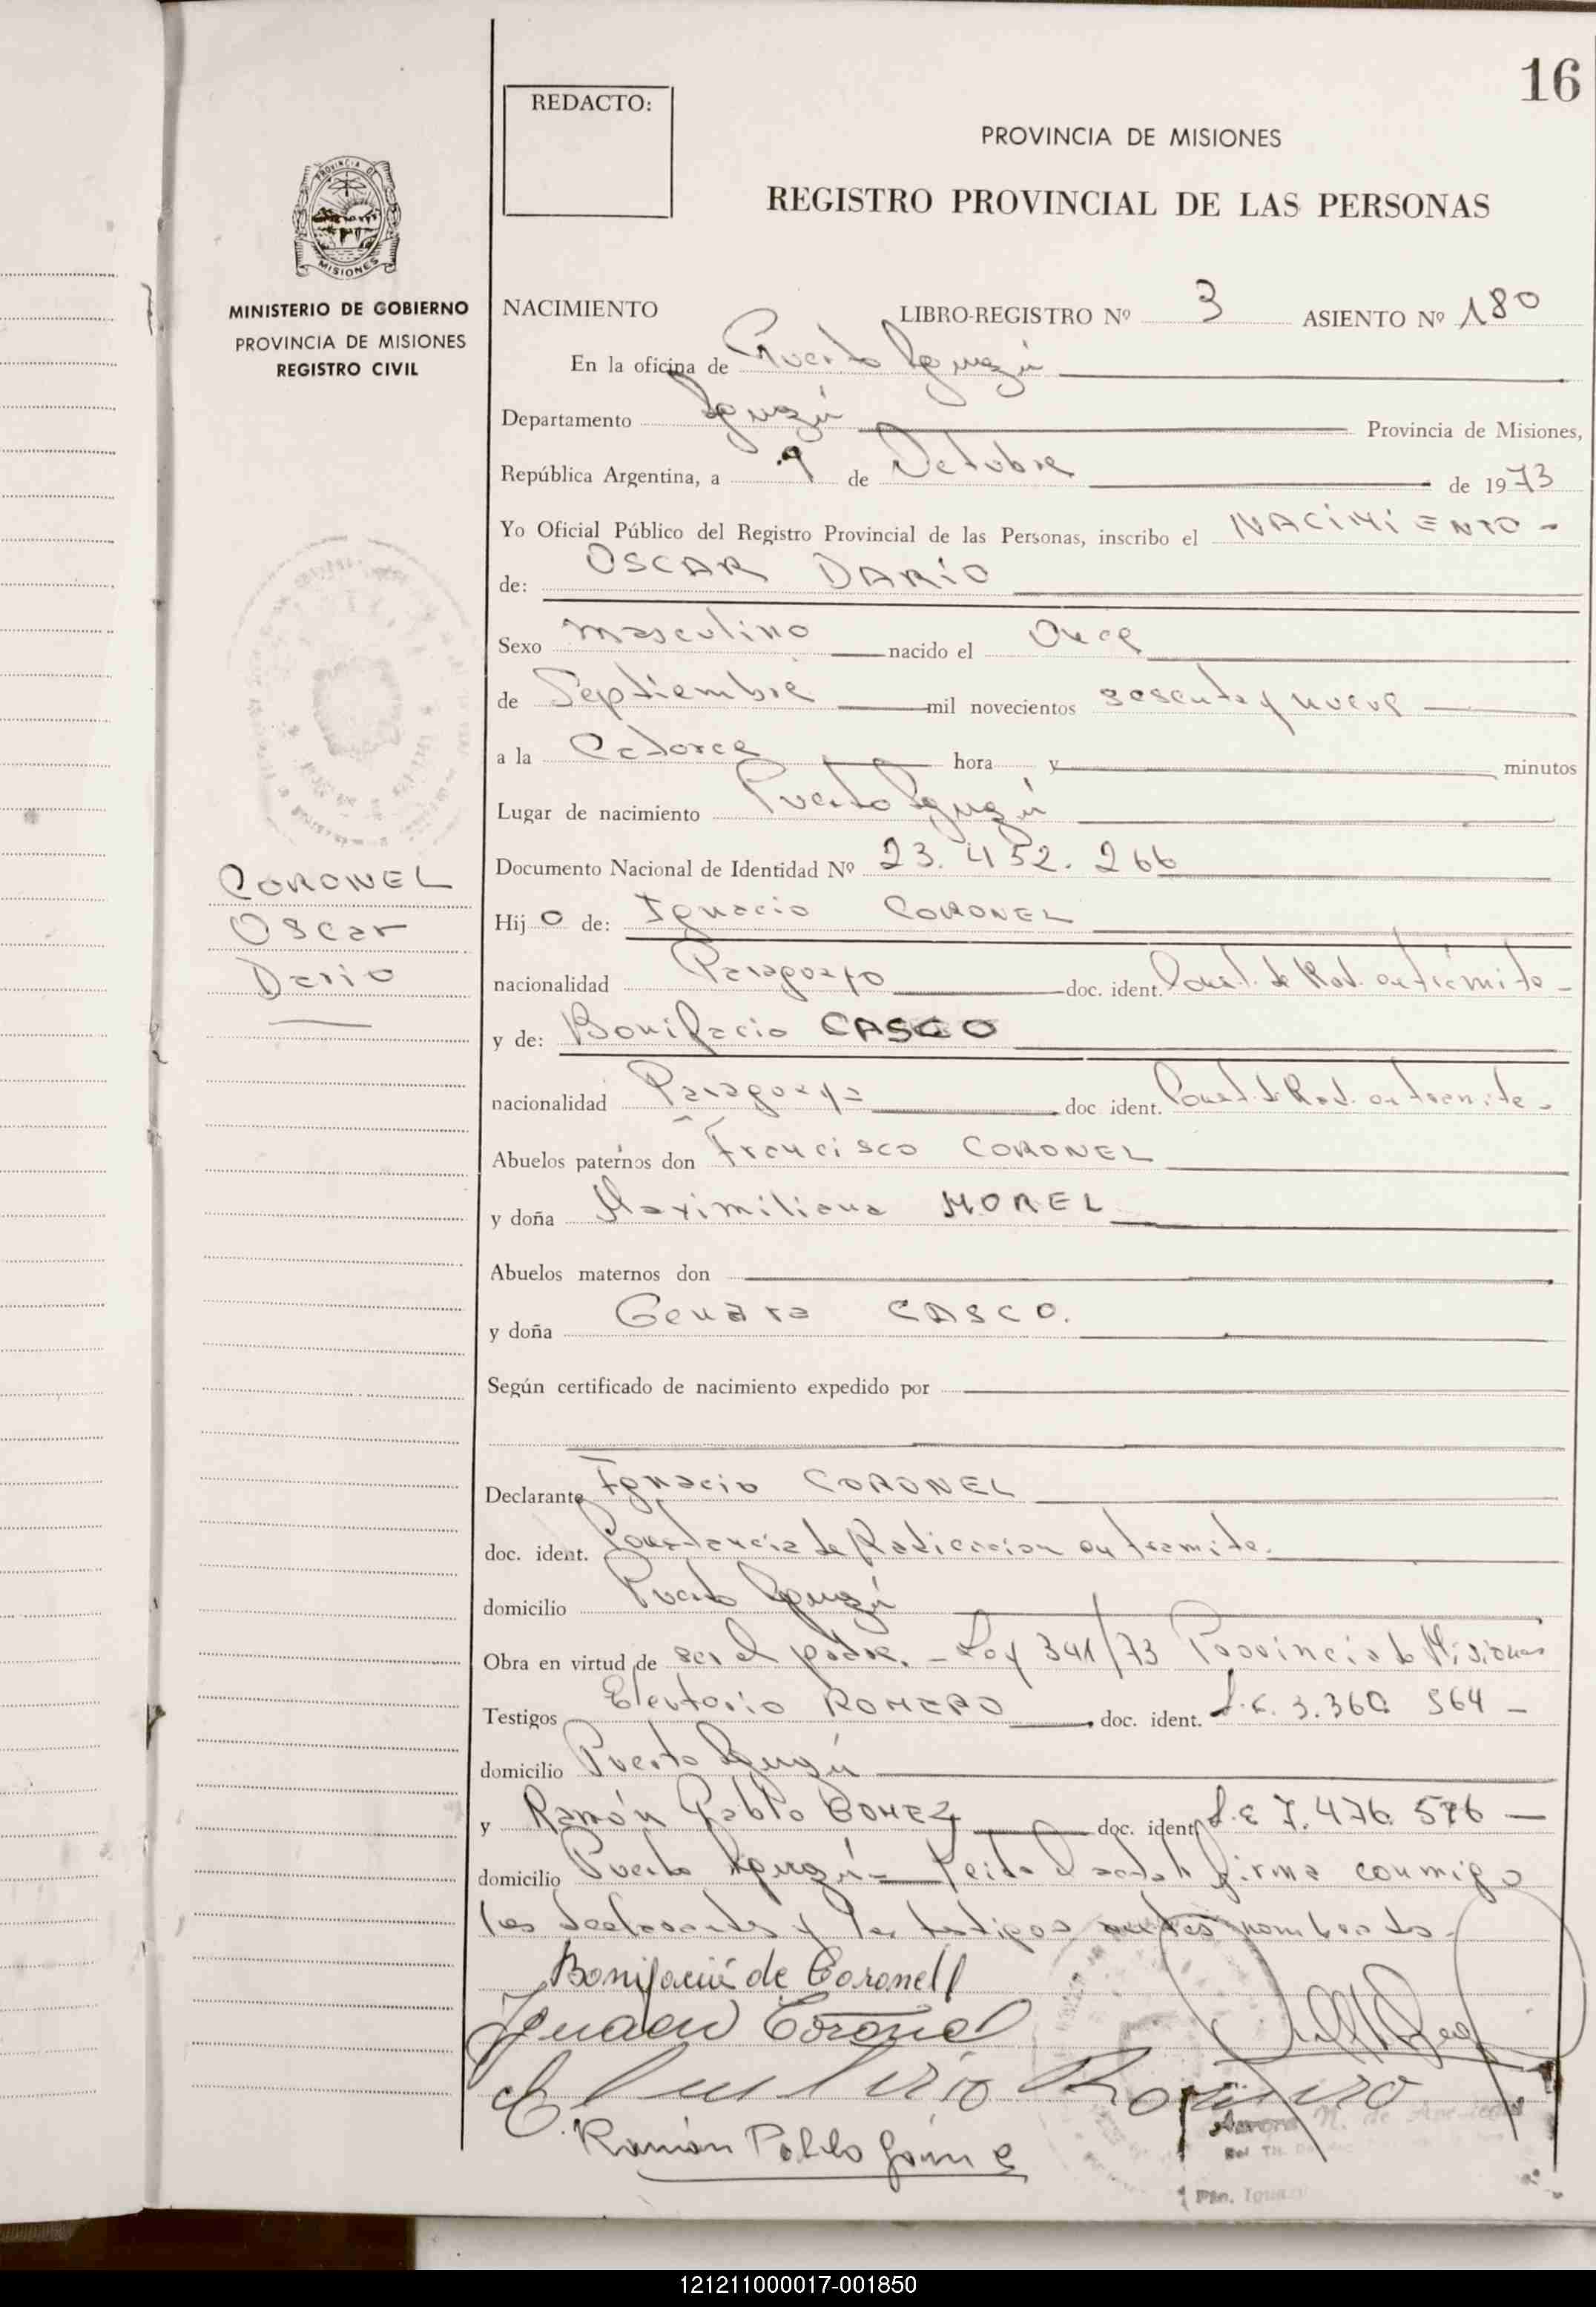 16
REDACTO:
PROVINCIA DE MISIONES
REGISTRO PROVINCIAL DE LAS PERSONAS
MINISTERIO DE GOBIERNO
PROVINCIA DE MISIONES
REGISTRO CIVIL
NACIMIENTO LIBRO-REGISTRO Nº 3 ASIENTO Nº 180
En la oficina de Puerto Iguazú
Departamento Iguazú Provincia de Misiones,
República Argentina, a 9 de Octubre de 1973
Yo Oficial Público del Registro Provincial de las Personas, inscribo el NACIMIENTO -
de: OSCAR DARIO
Sexo masculino nacido el Once
de Septiembre mil novecientos sesenta y nueve
a la Catorce hora y minutos
Lugar de nacimiento Puerto Iguazú
Documento Nacional de Identidad Nº 23.452.266
CORONEL
Oscar
Dario
Hijo de: Ignacio CORONEL
nacionalidad Paraguayo doc. ident. Const. de Rad. en trámite -
y de: Bonifacia CASCO
nacionalidad Paraguaya doc ident. Const. de Rad. en tramite -
Abuelos paternos don Francisco CORONEL
y doña Maximiliana MOREL
Abuelos maternos don
y doña Genara CASCO.
Según certificado de nacimiento expedido por
Declarante Ignacio CORONEL
doc. ident. Constancia de Radicacion en tramite.
domicilio Puerto Iguazú
Obra en virtud de ser el padre. - Ley 341/73 Provincia de Misiones
Testigos Eleuterio ROMERO doc. ident. L.E. 3.360 564 -
domicilio Puerto Iguazú
y Ramón Pablo GOMEZ doc. ident. L.E 7.476.576 -
domicilio Puerto Iguazú - Leida el acta firma conmigo
los declarantes y los testigos antes nombrados.
Bonifacia de Coronell
Ignacio Coronel
Eleuterio Romero
Ramon Pablo Gome
Aurora N. de
Pto. Iguazú
121211000017-001850